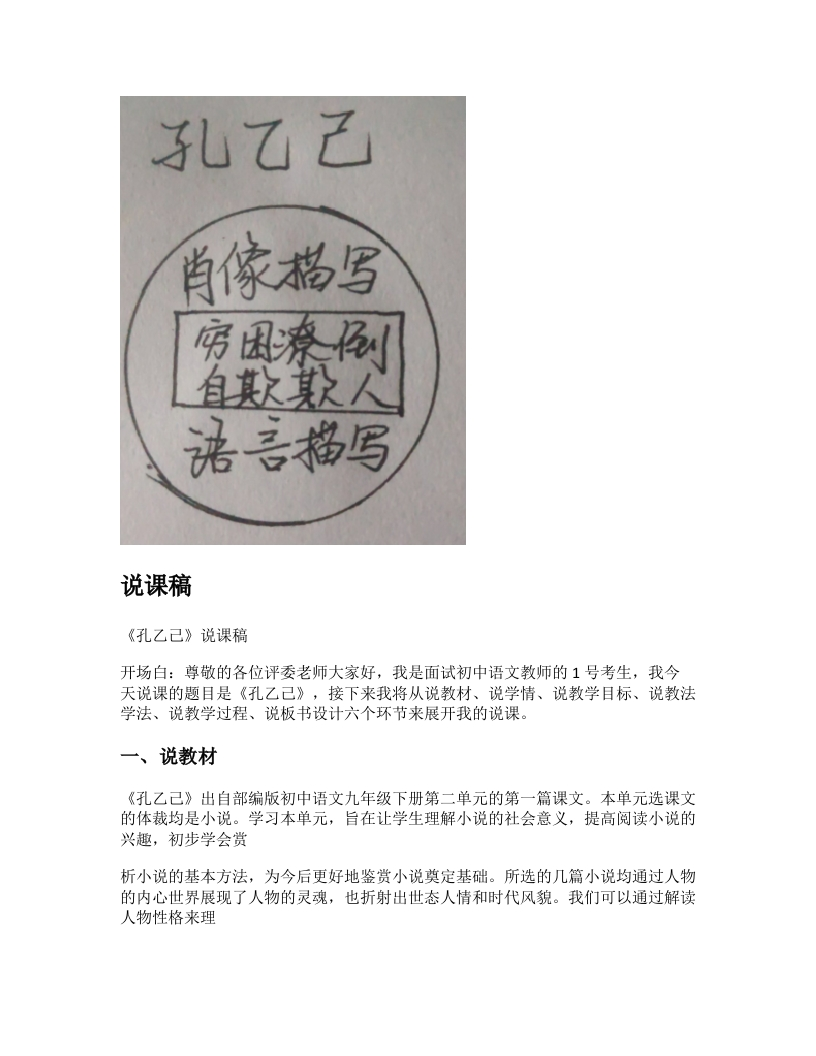 孔乙己
肖像描写
穷困潦倒
自欺欺人
语言描写
说课稿
《孔乙己》说课稿
开场白：尊敬的各位评委老师大家好，我是面试初中语文教师的 1 号考生，我今
天说课的题目是《孔乙己》，接下来我将从说教材、说学情、说教学目标、说教法
学法、说教学过程、说板书设计六个环节来展开我的说课。
一、说教材
《孔乙己》出自部编版初中语文九年级下册第二单元的第一篇课文。本单元选课文
的体裁均是小说。学习本单元，旨在让学生理解小说的社会意义，提高阅读小说的
兴趣，初步学会赏
析小说的基本方法，为今后更好地鉴赏小说奠定基础。所选的几篇小说均通过人物
的内心世界展现了人物的灵魂，也折射出世态人情和时代风貌。我们可以通过解读
人物性格来理